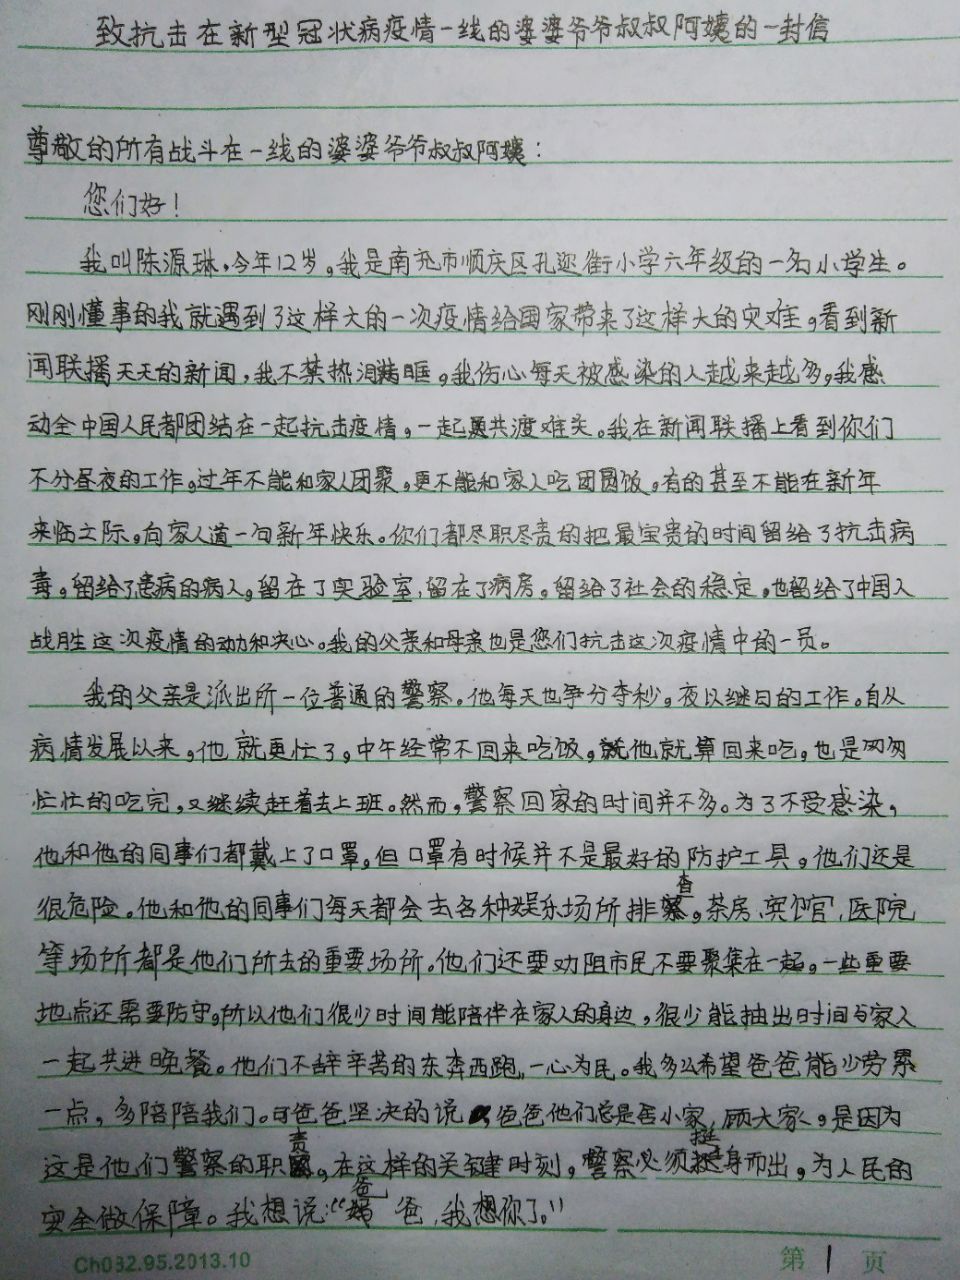 致抗击在新型冠状病疫情一线的婆婆爷爷叔叔阿姨的一封信
尊敬的所有战斗在一线的婆婆爷爷叔叔阿姨：
您们好！
我叫陈源琳，今年12岁，我是南充市顺庆区孔迩街小学六年级的一名小学生。
刚刚懂事的我就遇到了这样大的一次疫情给国家带来了这样大的灾难，看到新
闻联播天天的新闻，我不禁热泪满眶，我伤心每天被感染的人越来越多，我感
动全中国人民都团结在一起抗击疫情，一起共渡难关。我在新闻联播上看到你们
不分昼夜的工作，过年不能和家人团聚，更不能和家人吃团圆饭，有的甚至不能在新年
来临之际，向家人道一句新年快乐。你们都尽职尽责的把最宝贵的时间留给了抗击病
毒，留给了患病的病人，留在了实验室，留在了病房，留给了社会的稳定，也留给了中国人
战胜这次疫情的动力和决心。我的父亲和母亲也是您们抗击这次疫情中的一员。
我的父亲是派出所一位普通的警察。他每天也争分夺秒，夜以继日的工作。自从
病情发展以来，他就更忙了，中午经常不回来吃饭，他就算回来吃，也是匆匆
忙忙的吃完，又继续赶着去上班。然而，警察回家的时间并不多。为了不受感染，
他和他的同事们都戴上了口罩，但口罩有时候并不是最好的防护工具，他们还是
很危险。他和他的同事们每天都会去各种娱乐场所排查，茶房、宾馆、医院
等场所都是他们所去的重要场所。他们还要劝阻市民不要聚集在一起，一些重要
地点还需要防守，所以他们很少时间能陪伴在家人的身边，很少能抽出时间与家人
一起共进晚餐。他们不辞辛苦的东奔西跑，一心为民。我多么希望爸爸能少劳累
一点，多陪陪我们。可爸爸坚决的说，爸爸他们总是舍小家，顾大家，是因为
这是他们警察的职责，在这样的关键时刻，警察必须挺身而出，为人民的
安全做保障。我想说：“爸爸，我想你了。”
Ch032.95.2013.10
第 1 页